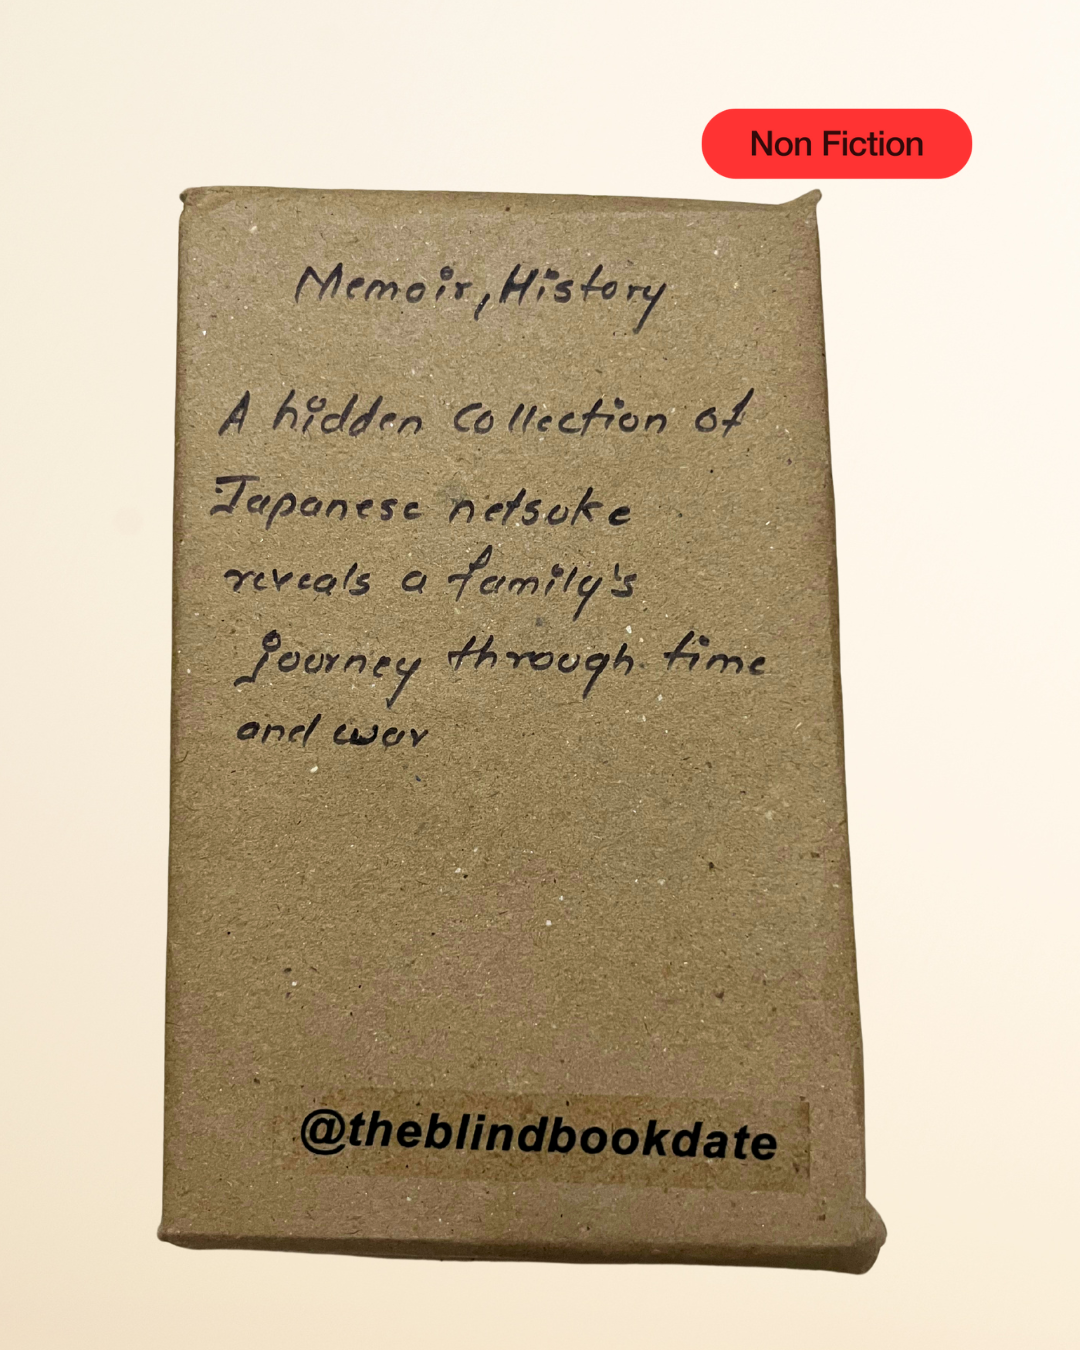 Non Fiction
Memoir, History
A hidden collection of
Japanese netsuke
reveals a family's
journey through time
and war
@theblindbookdate